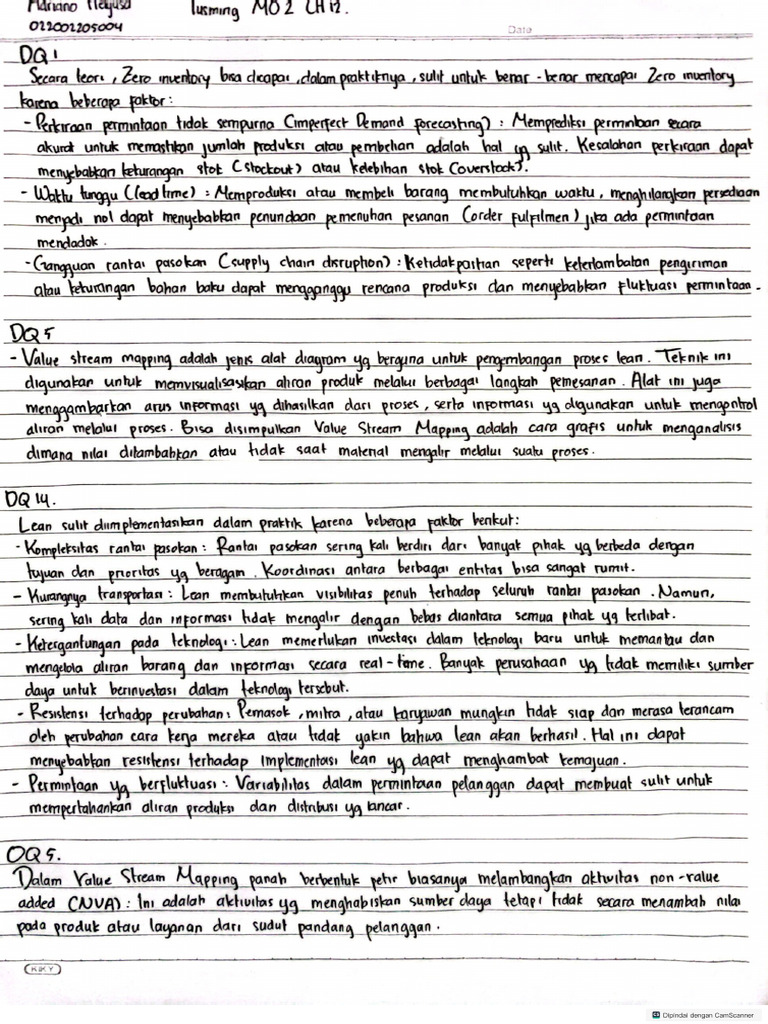 022002205004
Tusming M02 CH12.
Date
DQ 1
Secara teori, Zero inventory bisa dicapai, dalam praktiknya, sulit untuk benar-benar mencapai Zero inventory
karena beberapa faktor:
- Perkiraan permintaan tidak sempurna (imperfect Demand forecasting): Memprediksi permintaan secara
akurat untuk memastikan jumlah produksi atau pembelian adalah hal yg sulit. Kesalahan perkiraan dapat
menyebabkan keturangan stok (stockout) atau kelebihan stok (overstock).
- Waktu tunggu (lead time): Memproduksi atau membeli barang membutuhkan waktu, menghilangkan persediaan
menjadi nol dapat menyebabkan penundaan pemenuhan pesanan (order fulfilmen) jika ada permintaan
mendadak.
- Gangguan rantai pasokan (supply chain disruption): Ketidakpastian seperti keterlambatan pengiriman
atau keturangan bahan baku dapat mengganggu rencana produksi dan menyebabkan fluktuasi permintaan.
DQ 5
- Value stream mapping adalah jenis alat diagram yg berguna untuk pengembangan proses lean. Teknik ini
digunakan untuk memvisualisasikan aliran produk melalui berbagai langkah pemesanan. Alat ini juga
menggambarkan arus informasi yg dihasilkan dari proses, serta informasi yg digunakan untuk mengontrol
aliran melalui proses. Bisa disimpulkan Value Stream Mapping adalah cara grafis untuk menganalisis
dimana nilai ditambahkan atau tidak saat material mengalir melalui suatu proses.
DQ 14.
Lean sulit diimplementasikan dalam praktik karena beberapa faktor berikut:
- Kompleksitas rantai pasokan: Rantai pasokan sering kali berdiri dari banyak pihak yg berbeda dengan
tujuan dan prioritas yg beragam. Koordinasi antara berbagai entitas bisa sangat rumit.
- Kurangnya transportasi: Lean membutuhkan visibilitas penuh terhadap seluruh rantai pasokan. Namun,
sering kali data dan informasi tidak mengalir dengan bebas diantara semua pihak yg terlibat.
- Ketergantungan pada teknologi: Lean memerlukan investasi dalam teknologi baru untuk memantau dan
mengelola aliran barang dan informasi secara real-time. Banyak perusahaan yg tidak memiliki sumber
daya untuk berinvestasi dalam teknologi tersebut.
- Resistensi terhadap perubahan: Pemasok, mitra, atau karyawan mungkin tidak siap dan merasa terancam
oleh perubahan cara kerja mereka atau tidak yakin bahwa lean akan berhasil. Hal ini dapat
menyebabkan resistensi terhadap implementasi lean yg dapat menghambat kemajuan.
- Permintaan yg berfluktuasi: Variabilitas dalam permintaan pelanggan dapat membuat sulit untuk
mempertahankan aliran produksi dan distribusi yg lancar.
OQ 5.
Dalam Value Stream Mapping panah berbentuk petir biasanya melambangkan aktivitas non-value
added (NVA): Ini adalah aktivitas yg menghabiskan sumber daya tetapi tidak secara menambah nilai
pada produk atau layanan dari sudut pandang pelanggan.
KIKY
Dipindai dengan CamScanner